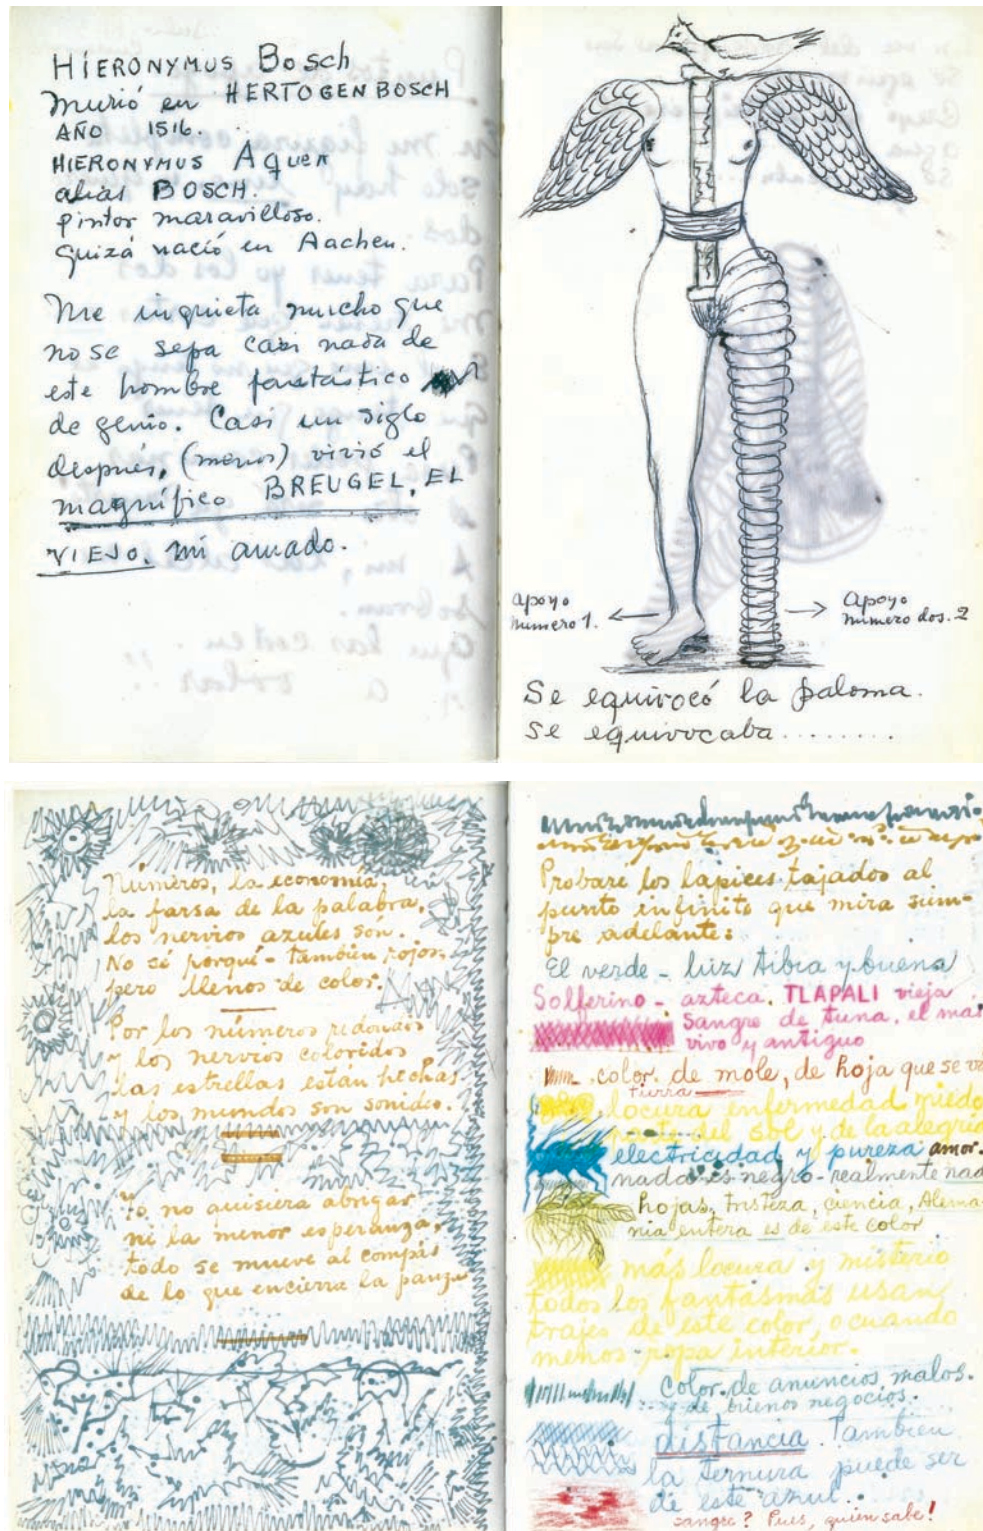 HIERONYMUS Bosch
murió en HERTOGENBOSCH
AÑO 1516.
HIERONYMUS Aquen
alias BOSCH.
pintor maravilloso.
quizá nació en Aachen.
Me inquieta mucho que
no se sepa casi nada de
este hombre fantástico
de genio. Casi un siglo
después, (menos) vivió el
magnífico BREUGEL, EL
VIEJO, mi amado.
apoyo
numero 1.
apoyo
numero dos. 2
Se equivocó la paloma.
Se equivocaba ........
Números, la economía
la farsa de la palabra,
los nervios azules són.
No sé porqué - también rojos,
pero llenos de color.
Por los números redondos
y los nervios coloridos
las estrellas están hechas
y los mundos son sonidos.
Yo no quisiera abrigar
ni la menor esperanza,
todo se mueve al compás
de lo que encierra la panza
Probaré los lápices tajados al
punto infinito que mira siem-
pre adelante:
El verde - luz tibia y buena
Solferino - azteca. TLAPALI vieja
sangre de tuna, el más
vivo y antiguo
color de mole, de hoja que se va
tierra
locura enfermedad miedo
parte del sol y de la alegría
electricidad y pureza amor.
nada es negro - realmente nada
hojas, tristeza, ciencia, Alema-
nia entera es de este color
más locura y misterio
todos los fantasmas usan
trajes de este color, o cuando
menos ropa interior.
color de anuncios malos.
y de buenos negocios.
distancia. También
la ternura puede ser
de este azul.
sangre? Pues, quien sabe!